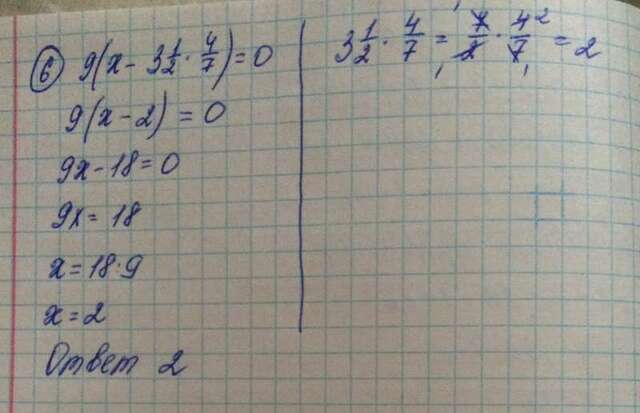 6 9(x - 3 1/2 · 4/7) = 0
9(x - 2) = 0
9x - 18 = 0
9x = 18
x = 18:9
x = 2
Ответ 2
3 1/2 · 4/7 = 7/2 · 4/7 = 2